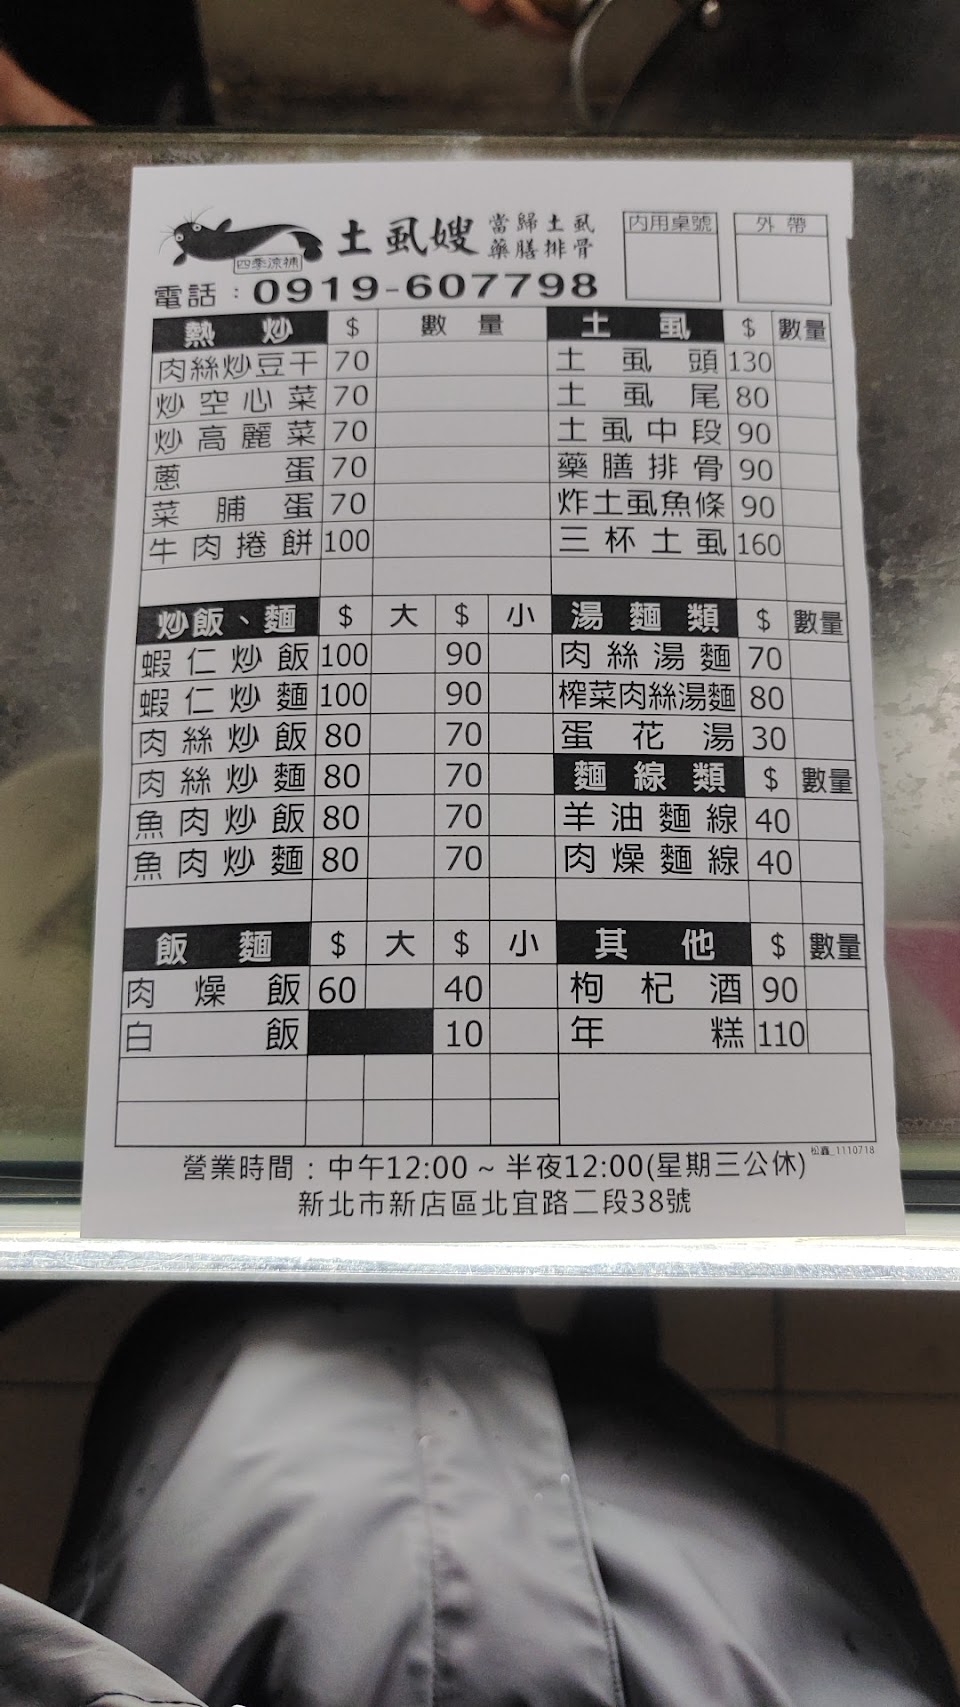 土虱嫂 當歸土虱
藥膳排骨
四季涼補
內用桌號 外帶
電話：0919-607798
熱炒 $ 數量
肉絲炒豆干 70
炒空心菜 70
炒高麗菜 70
蔥蛋 70
菜脯蛋 70
牛肉捲餅 100
土虱 $ 數量
土虱頭 130
土虱尾 80
土虱中段 90
藥膳排骨 90
炸土虱魚條 90
三杯土虱 160
炒飯、麵 $ 大 $ 小
蝦仁炒飯 100 90
蝦仁炒麵 100 90
肉絲炒飯 80 70
肉絲炒麵 80 70
魚肉炒飯 80 70
魚肉炒麵 80 70
湯麵類 $ 數量
肉絲湯麵 70
榨菜肉絲湯麵 80
蛋花湯 30
麵線類 $ 數量
羊油麵線 40
肉燥麵線 40
飯麵 $ 大 $ 小
肉燥飯 60 40
白飯 10
其他 $ 數量
枸杞酒 90
年糕 110
松鑫_1110718
營業時間：中午12:00～半夜12:00(星期三公休)
新北市新店區北宜路二段38號